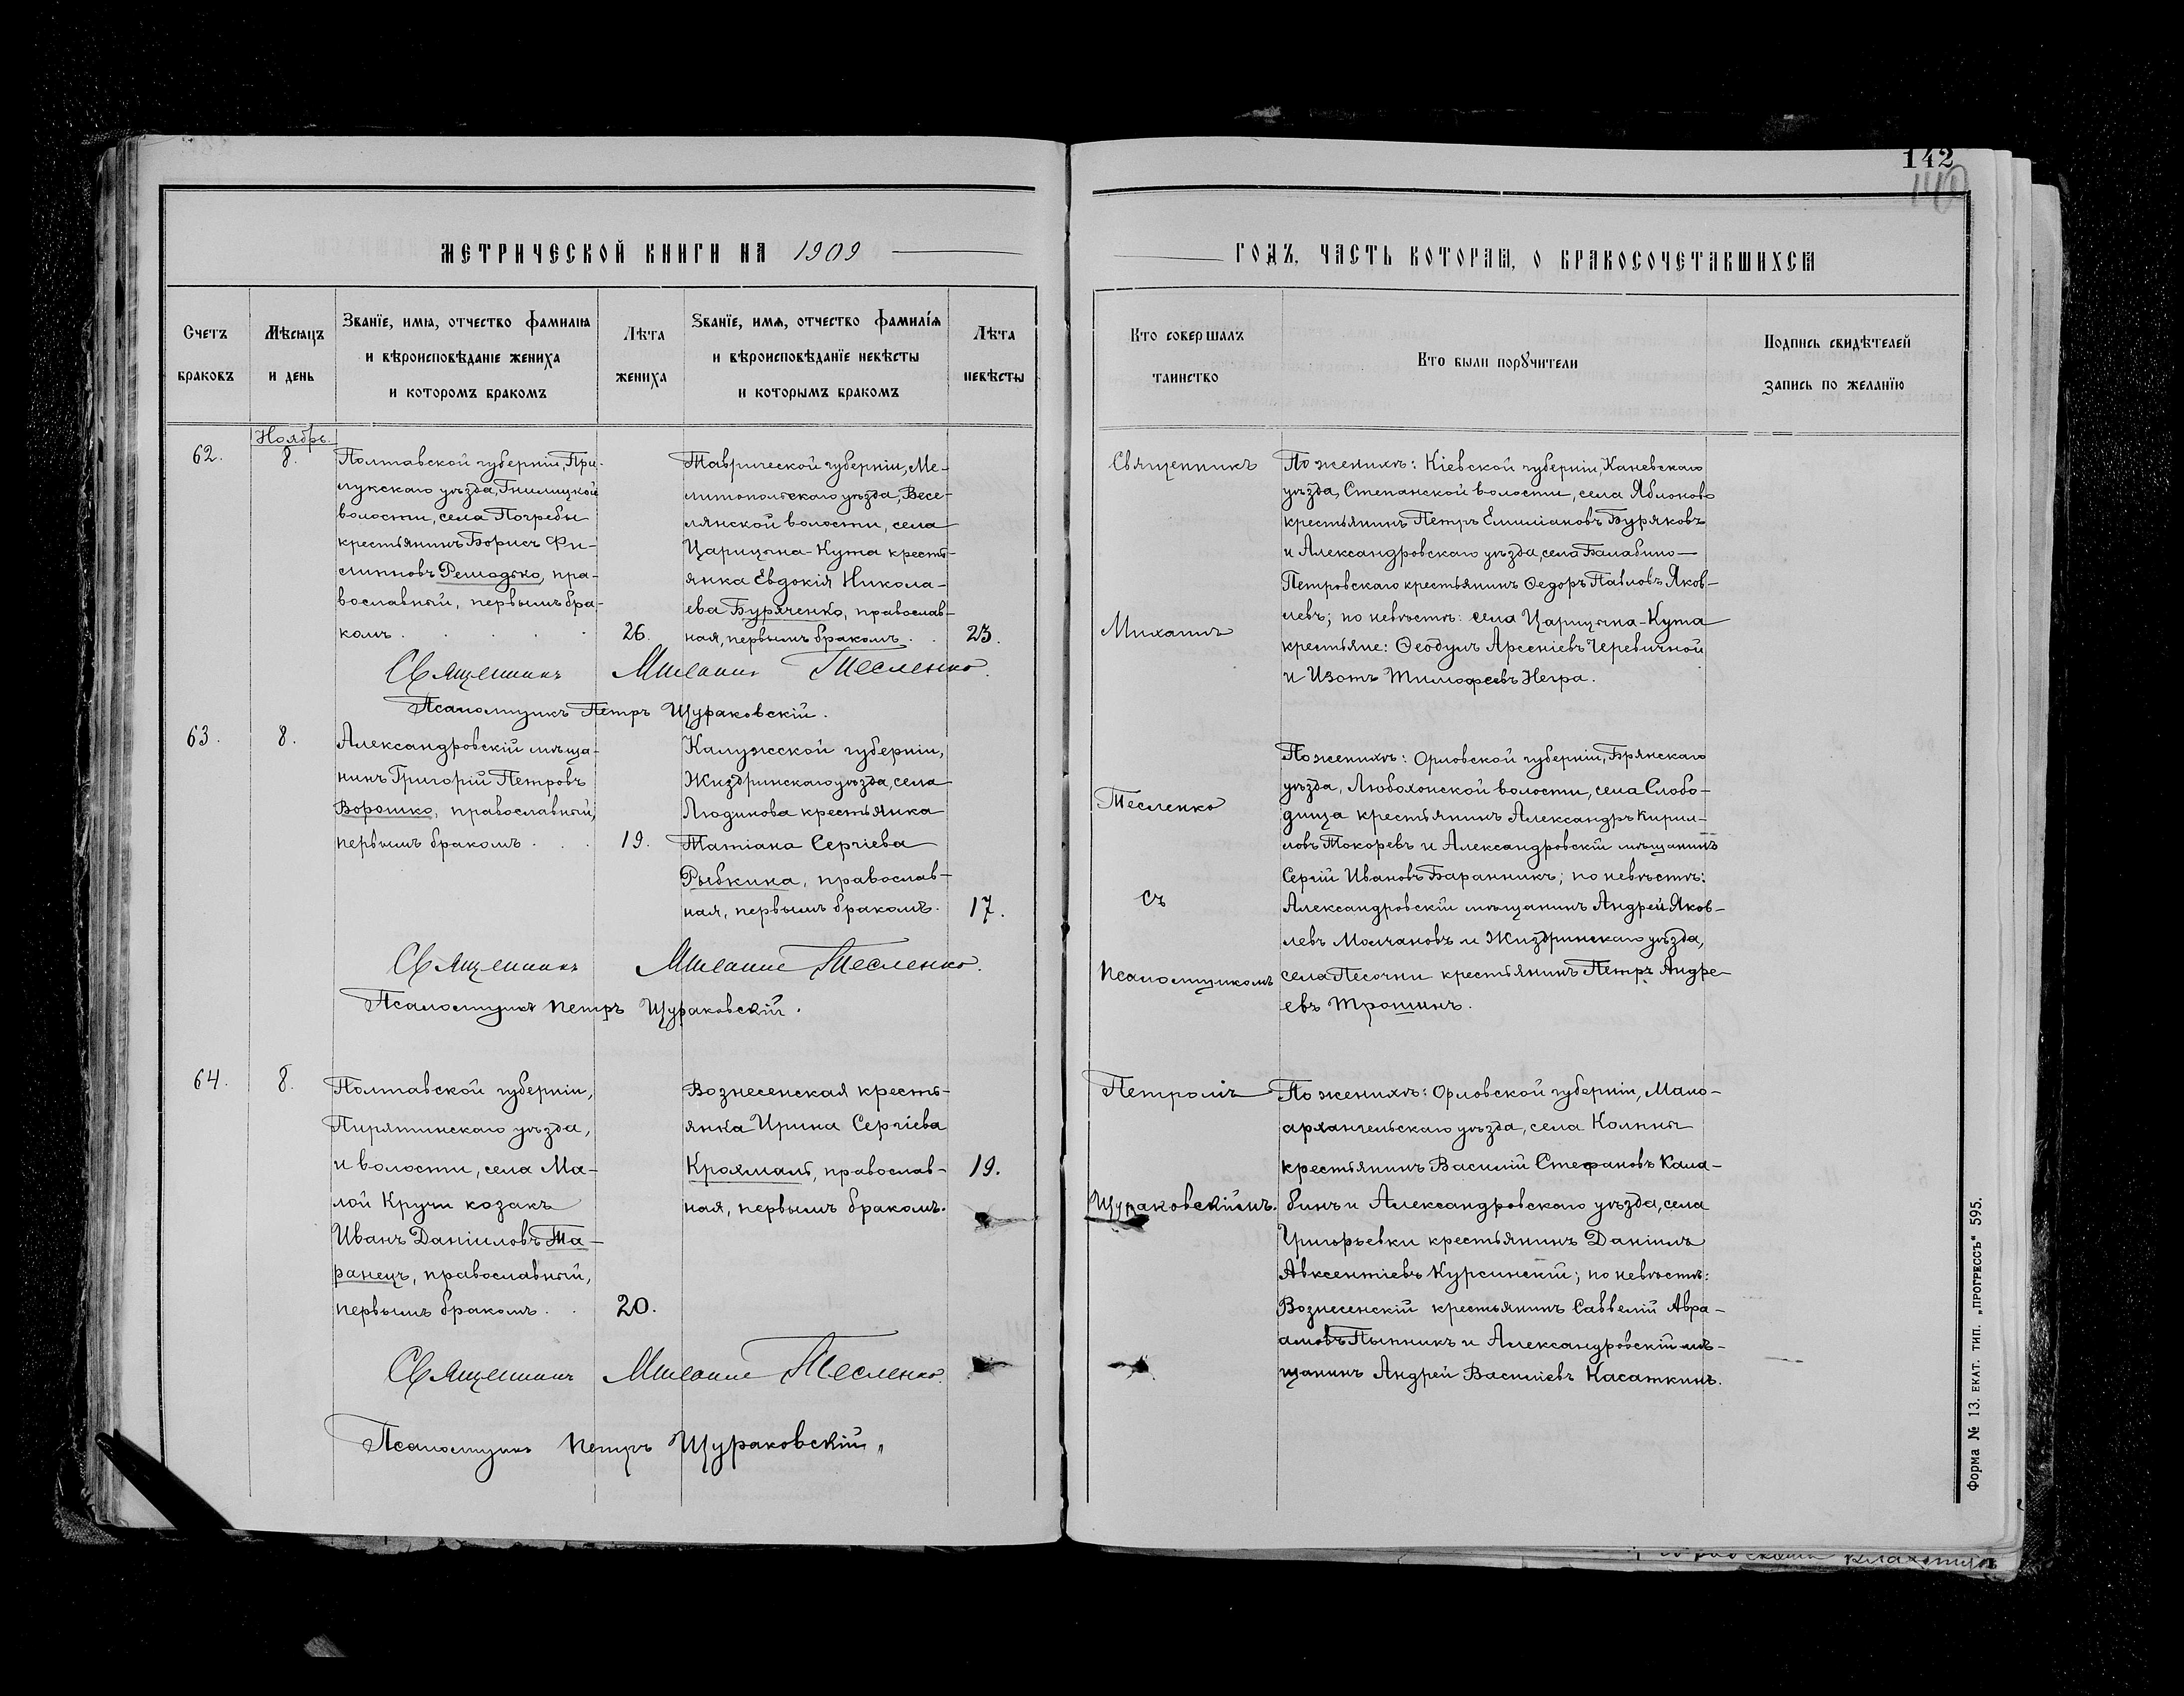 142
140
МЕТРИЧЕСКОЙ КНИГИ НА 1909
ГОДЪ, ЧАСТЬ КОТОРАЯ, О БРАКОСОЧЕТАВШИХСЯ
Счетъ браковъ
Мѣсяцъ и день
Званіе, имя, отчество фамилія
и вѣроисповѣданіе жениха
и которомъ бракомъ
Лѣта жениха
Званіе, имя, отчество фамилія
и вѣроисповѣданіе невѣсты
и которымъ бракомъ
Лѣта невѣсты
Кто совершалъ таинство
Кто были поручители
Подпись свидѣтелей
запись по желанію
Ноябрь.
62.
8.
Полтавской губерніи, При-
лукскаго уѣзда, Гнилицкой
волости, села Погребы
крестьянинъ Борисъ Фи-
липповъ Ремодько, пра-
вославный, первымъ бра-
комъ.
26.
Таврической губерніи, Ме-
литопольскаго уѣзда, Весе-
лянской волости, села
Царицына-Кута кресть-
янка Евдокія Никола-
ева Буряченко, православ-
ная, первымъ бракомъ.
23.
Священникъ Михаилъ Тесленко.
Псаломщикъ Петръ Щураковскій.
63.
8.
Александровскій мѣща-
нинъ Григорій Петровъ
Ворошко, православный,
первымъ бракомъ.
19.
Калужской губерніи,
Жиздринскаго уѣзда, села
Людинова крестьянка
Татіана Сергіева
Рыбкина, православ-
ная, первымъ бракомъ.
17.
Священникъ Михаилъ Тесленко.
Псаломщикъ Петръ Щураковскій.
64.
8.
Полтавской губерніи,
Пирятинскаго уѣзда,
и волости, села Ма-
лой Кручи козакъ
Иванъ Даніиловъ Та-
ранецъ, православный,
первымъ бракомъ.
20.
Вознесенская кресть-
янка Ирина Сергіева
Крохмаль, православ-
ная, первымъ бракомъ.
19.
Священникъ Михаилъ Тесленко.
Псаломщикъ Петръ Щураковскій
Священникъ
Михаилъ
Тесленко
съ
псаломщикомъ
Петромъ
Щураковскимъ.
По женихѣ: Кіевской губерніи, Каневскаго
уѣзда, Степанской волости, села Яблоново
крестьянинъ Петръ Емиліановъ Буряковъ
и Александровскаго уѣзда, села Балабино-
Петровскаго крестьянинъ Ѳедоръ Павловъ Яков-
левъ; по невѣстѣ: села Царицына-Кута
крестьяне: Ѳеодулъ Арсеніевъ Черевичной
и Изотъ Тимофеевъ Негра.
По женихѣ: Орловской губерніи, Брянскаго
уѣзда, Любохонской волости, села Слобо-
дища крестьянинъ Александръ Кирил-
ловъ Токоревъ и Александровскій мѣщанинъ
Сергій Ивановъ Баранникъ; по невѣстѣ:
Александровскій мѣщанинъ Андрей Яков-
левъ Молчановъ и Жиздринскаго уѣзда,
села Песочни крестьянинъ Петръ Андре-
евъ Трошинъ.
По женихѣ: Орловской губерніи, Мало-
архангельскаго уѣзда, села Колпны
крестьянинъ Василій Стефановъ Кала-
бинъ и Александровскаго уѣзда, села
Григорьевки крестьянинъ Даніилъ
Авксентіевъ Курсинскій; по невѣстѣ:
Вознесенскій крестьянинъ Саввелій Авра-
амовъ Пынникъ и Александровскій мѣ-
щанинъ Андрей Василіевъ Касаткинъ.
Форма № 13. ЕКАТ. ТИП. „ПРОГРЕССЪ“ 595.